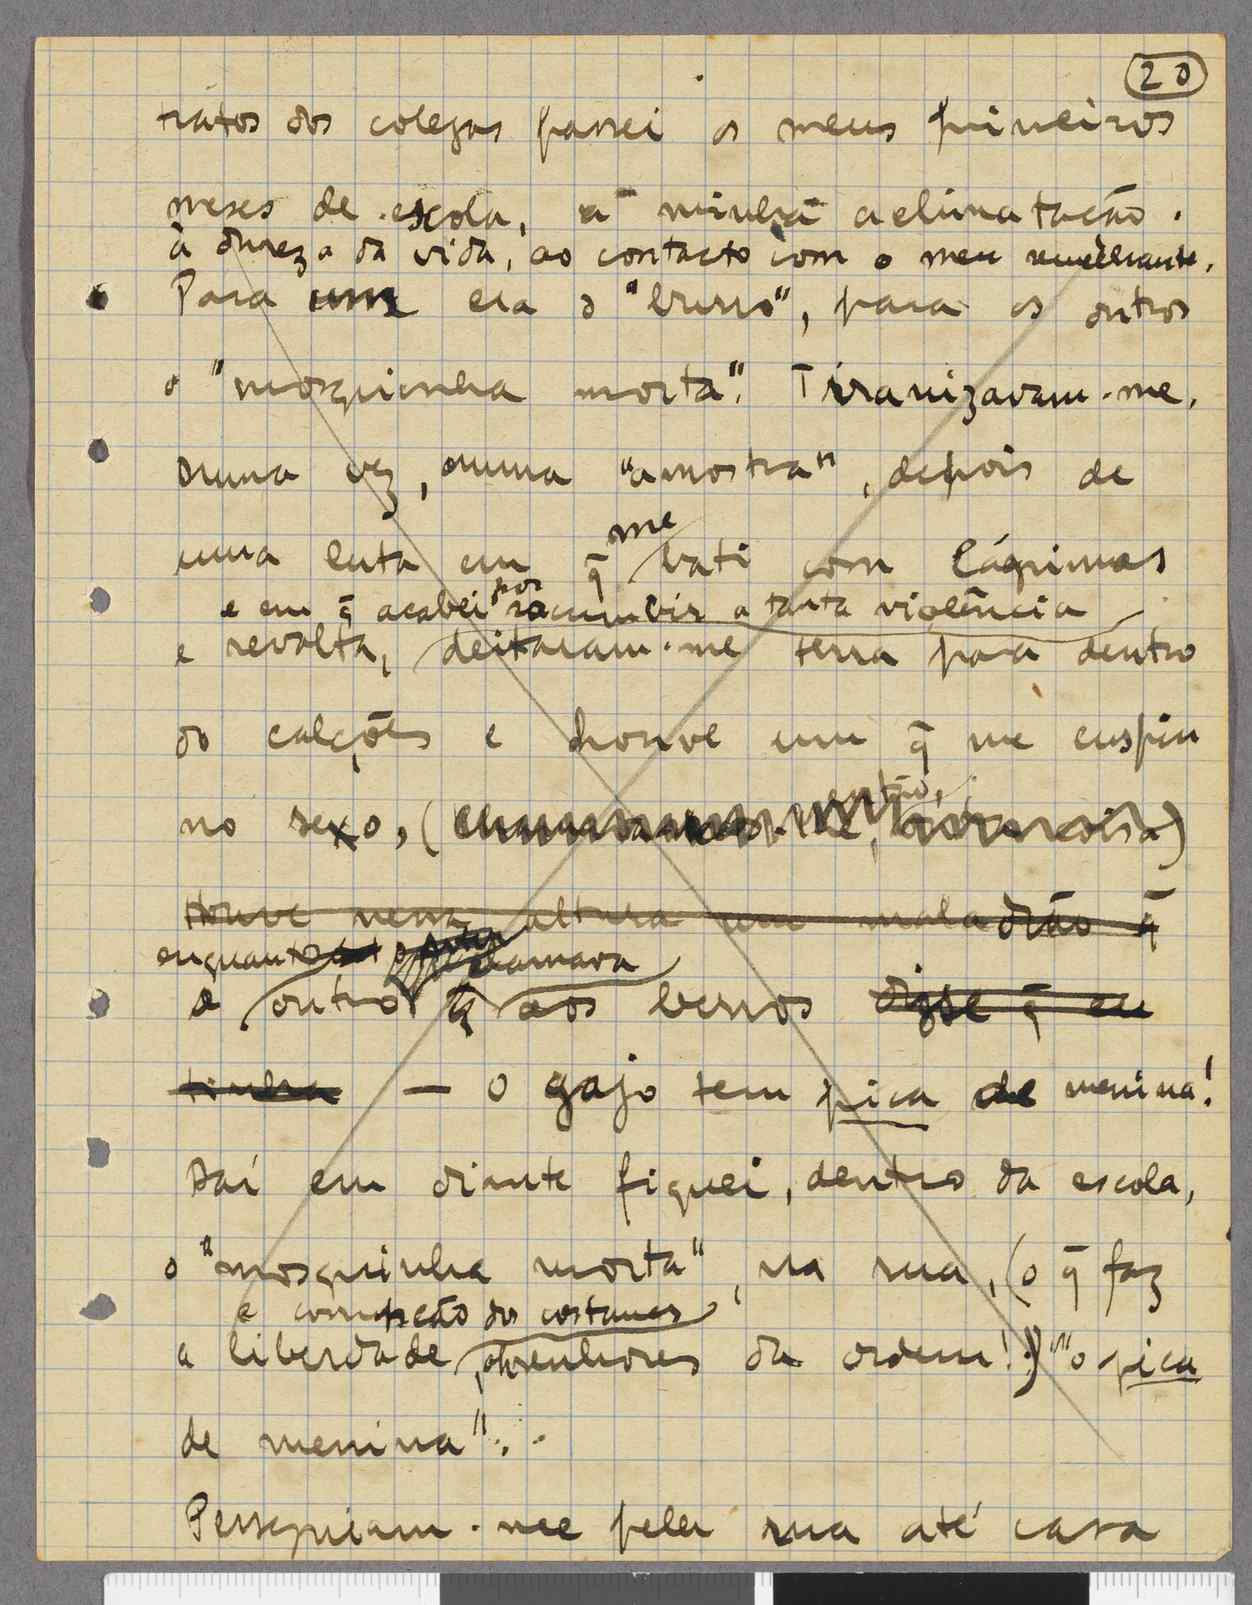 20
tratos dos colegas passei os meus primeiros
meses de escola, a minha aclimatação
à dureza da vida, ao contacto com o meu semelhante.
Para uns era o "burro", para os outros
o "mosquinha morta". Tiranizavam-me.
Duma vez, numa "amostra", depois de
uma luta em q̄ me bati com lágrimas
e em q̄ acabei por sucumbir a tanta violência
e revolta, deitaram-me terra para dentro
dos calções e houve um q̄ me cuspiu
no sexo, ( então, coisa)
Houve nessa altura um malandrão q̄
enquanto chamava
o outro q̄ aos berros disse q̄ eu
tinha — O gajo tem pica de menina!
Daí em diante fiquei, dentro da escola,
o "mosquinha morta", na rua, (o q̄ faz
e correcção dos costumes
a liberdade, senhores da ordem!) "o pica
de menina".
Perseguiam-me pela rua até casa